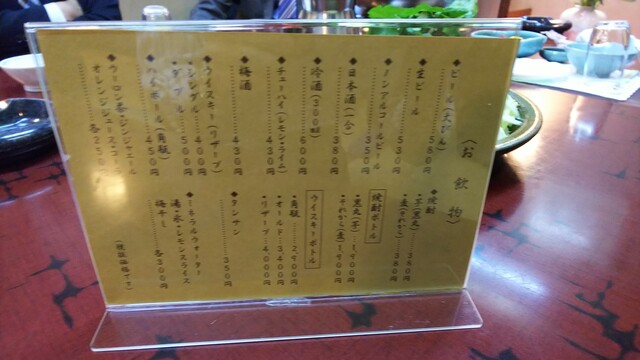 （お飲物）
◆ビール（大びん） 580円
◆生ビール 530円
◆ノンアルコールビール 350円
◆日本酒（一合） 380円
◆冷酒（300ml） 600円
◆チューハイ（レモン・ライム） 430円
◆梅酒 430円
◆ウイスキー（リザーブ）
・シングル 400円
・ダブル 500円
◆ハイボール（角瓶） 450円
◆ウーロン茶・ジンジャエール
オレンジジュース・コーラ 各250円
◆焼酎
・芋（黒丸） 380円
・麦（それから） 380円
焼酎ボトル
・黒丸（芋） 1,900円
・それから（麦） 1,900円
ウイスキーボトル
・角瓶 2,900円
・オールド 3,400円
・リザーブ 4,000円
◆タンサン 350円
◆ミネラルウォーター
湯・氷・レモンスライス
梅干ミ 各300円
（税抜価格です）